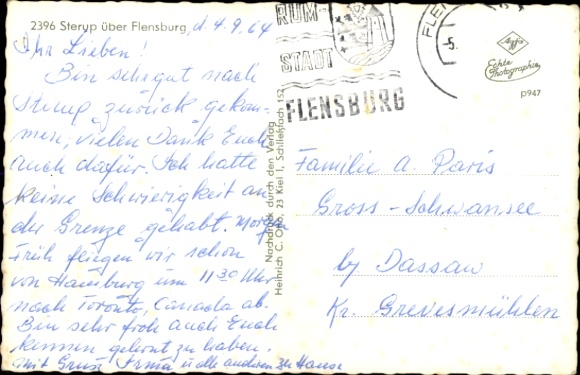 2396 Steryp über Flensburg, d. 4.9.64
Ihr Lieben!
Bin sehr gut nach
Sterup zurück gekom-
men, vielen Dank Euch
auch dafür. Ich hatte
keine Schwierigkeit an
der Grenze gehabt. Morgen
Früh fliegen wir schon
von Hamburg um 11 30 Uhr
nach Toronto, Canada ab.
Bin sehr froh auch Euch
kennen gelernt zu haben.
mit Gruß Irma u alle anderen zu Hause
Nachdruck durch den Verlag
Heinrich C. Otto, 23 Kiel 1, Schließfach 152
RUM-
STADT
FLENSBURG
FLENS
-5.
Agfa
Echte
Photographie
p947
Familie A. Paris
Gross-Schwansee
by Dassow
Kr. Grevesmühlen